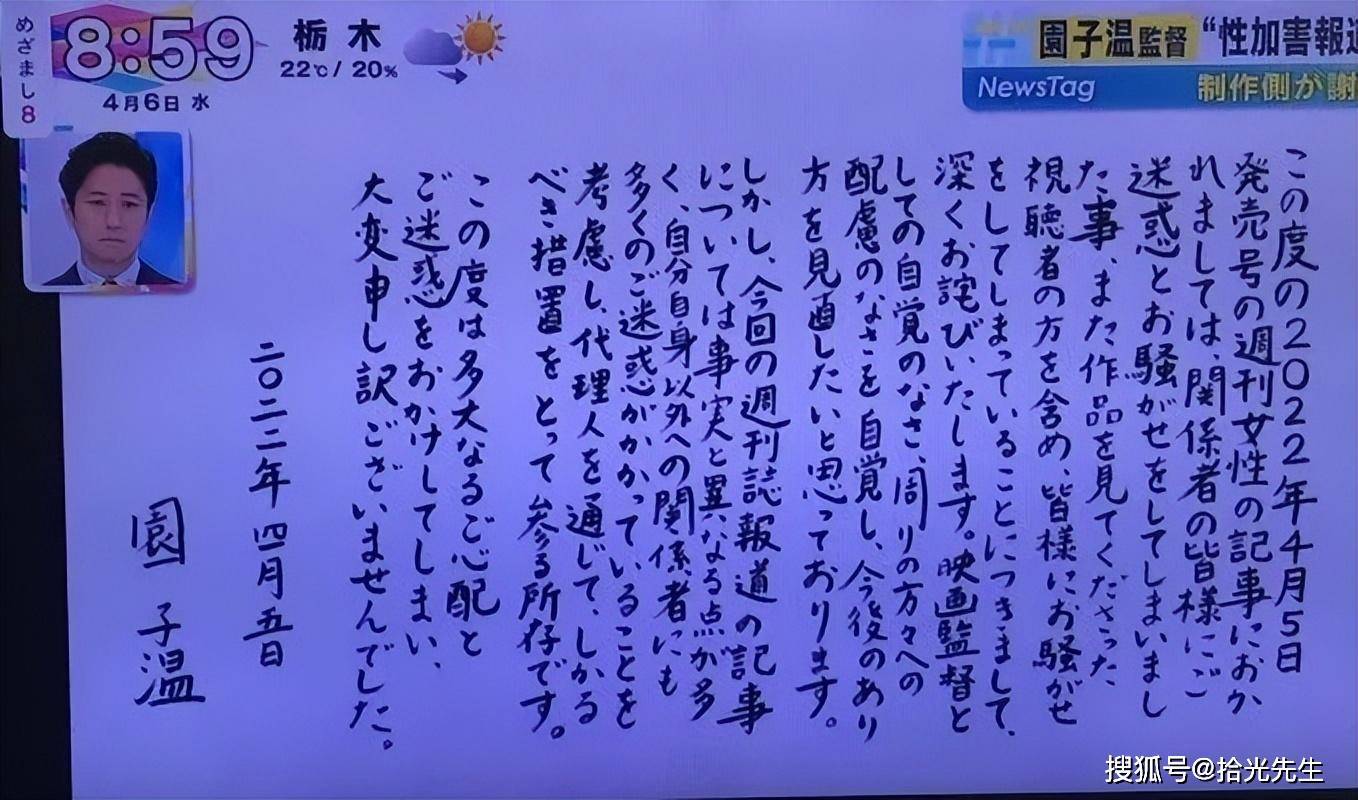 めざまし8
8:59
4月6日 水
栃木
22℃/20%
園子温監督 “性加害報道
NewsTag
制作側が謝
この度の2022年4月5日
発売号の週刊女性の記事におか
れましては、関係者の皆様にご
迷惑とお騒がせをしてしまいまし
た事、また作品を見てくださった
視聴者の方を含め、皆様にお騒がせ
をしてしまっていることにつきまして、
深くお詫びいたします。映画監督と
しての自覚のなさ、周りの方々への
配慮のなさを自覚し、今後のあり
方を見直したいと思っております。
しかし、今回の週刊誌報道の記事
については事実と異なる点が多
く、自分自身以外への関係者にも
多くのご迷惑がかかっていることを
考慮し、代理人を通じて、しかる
べき措置をとって参る所存です。
この度は多大なるご心配と
ご迷惑をおかけしてしまい、
大変申し訳ございませんでした。
二〇二二年四月五日
園子温
搜狐号@拾光先生